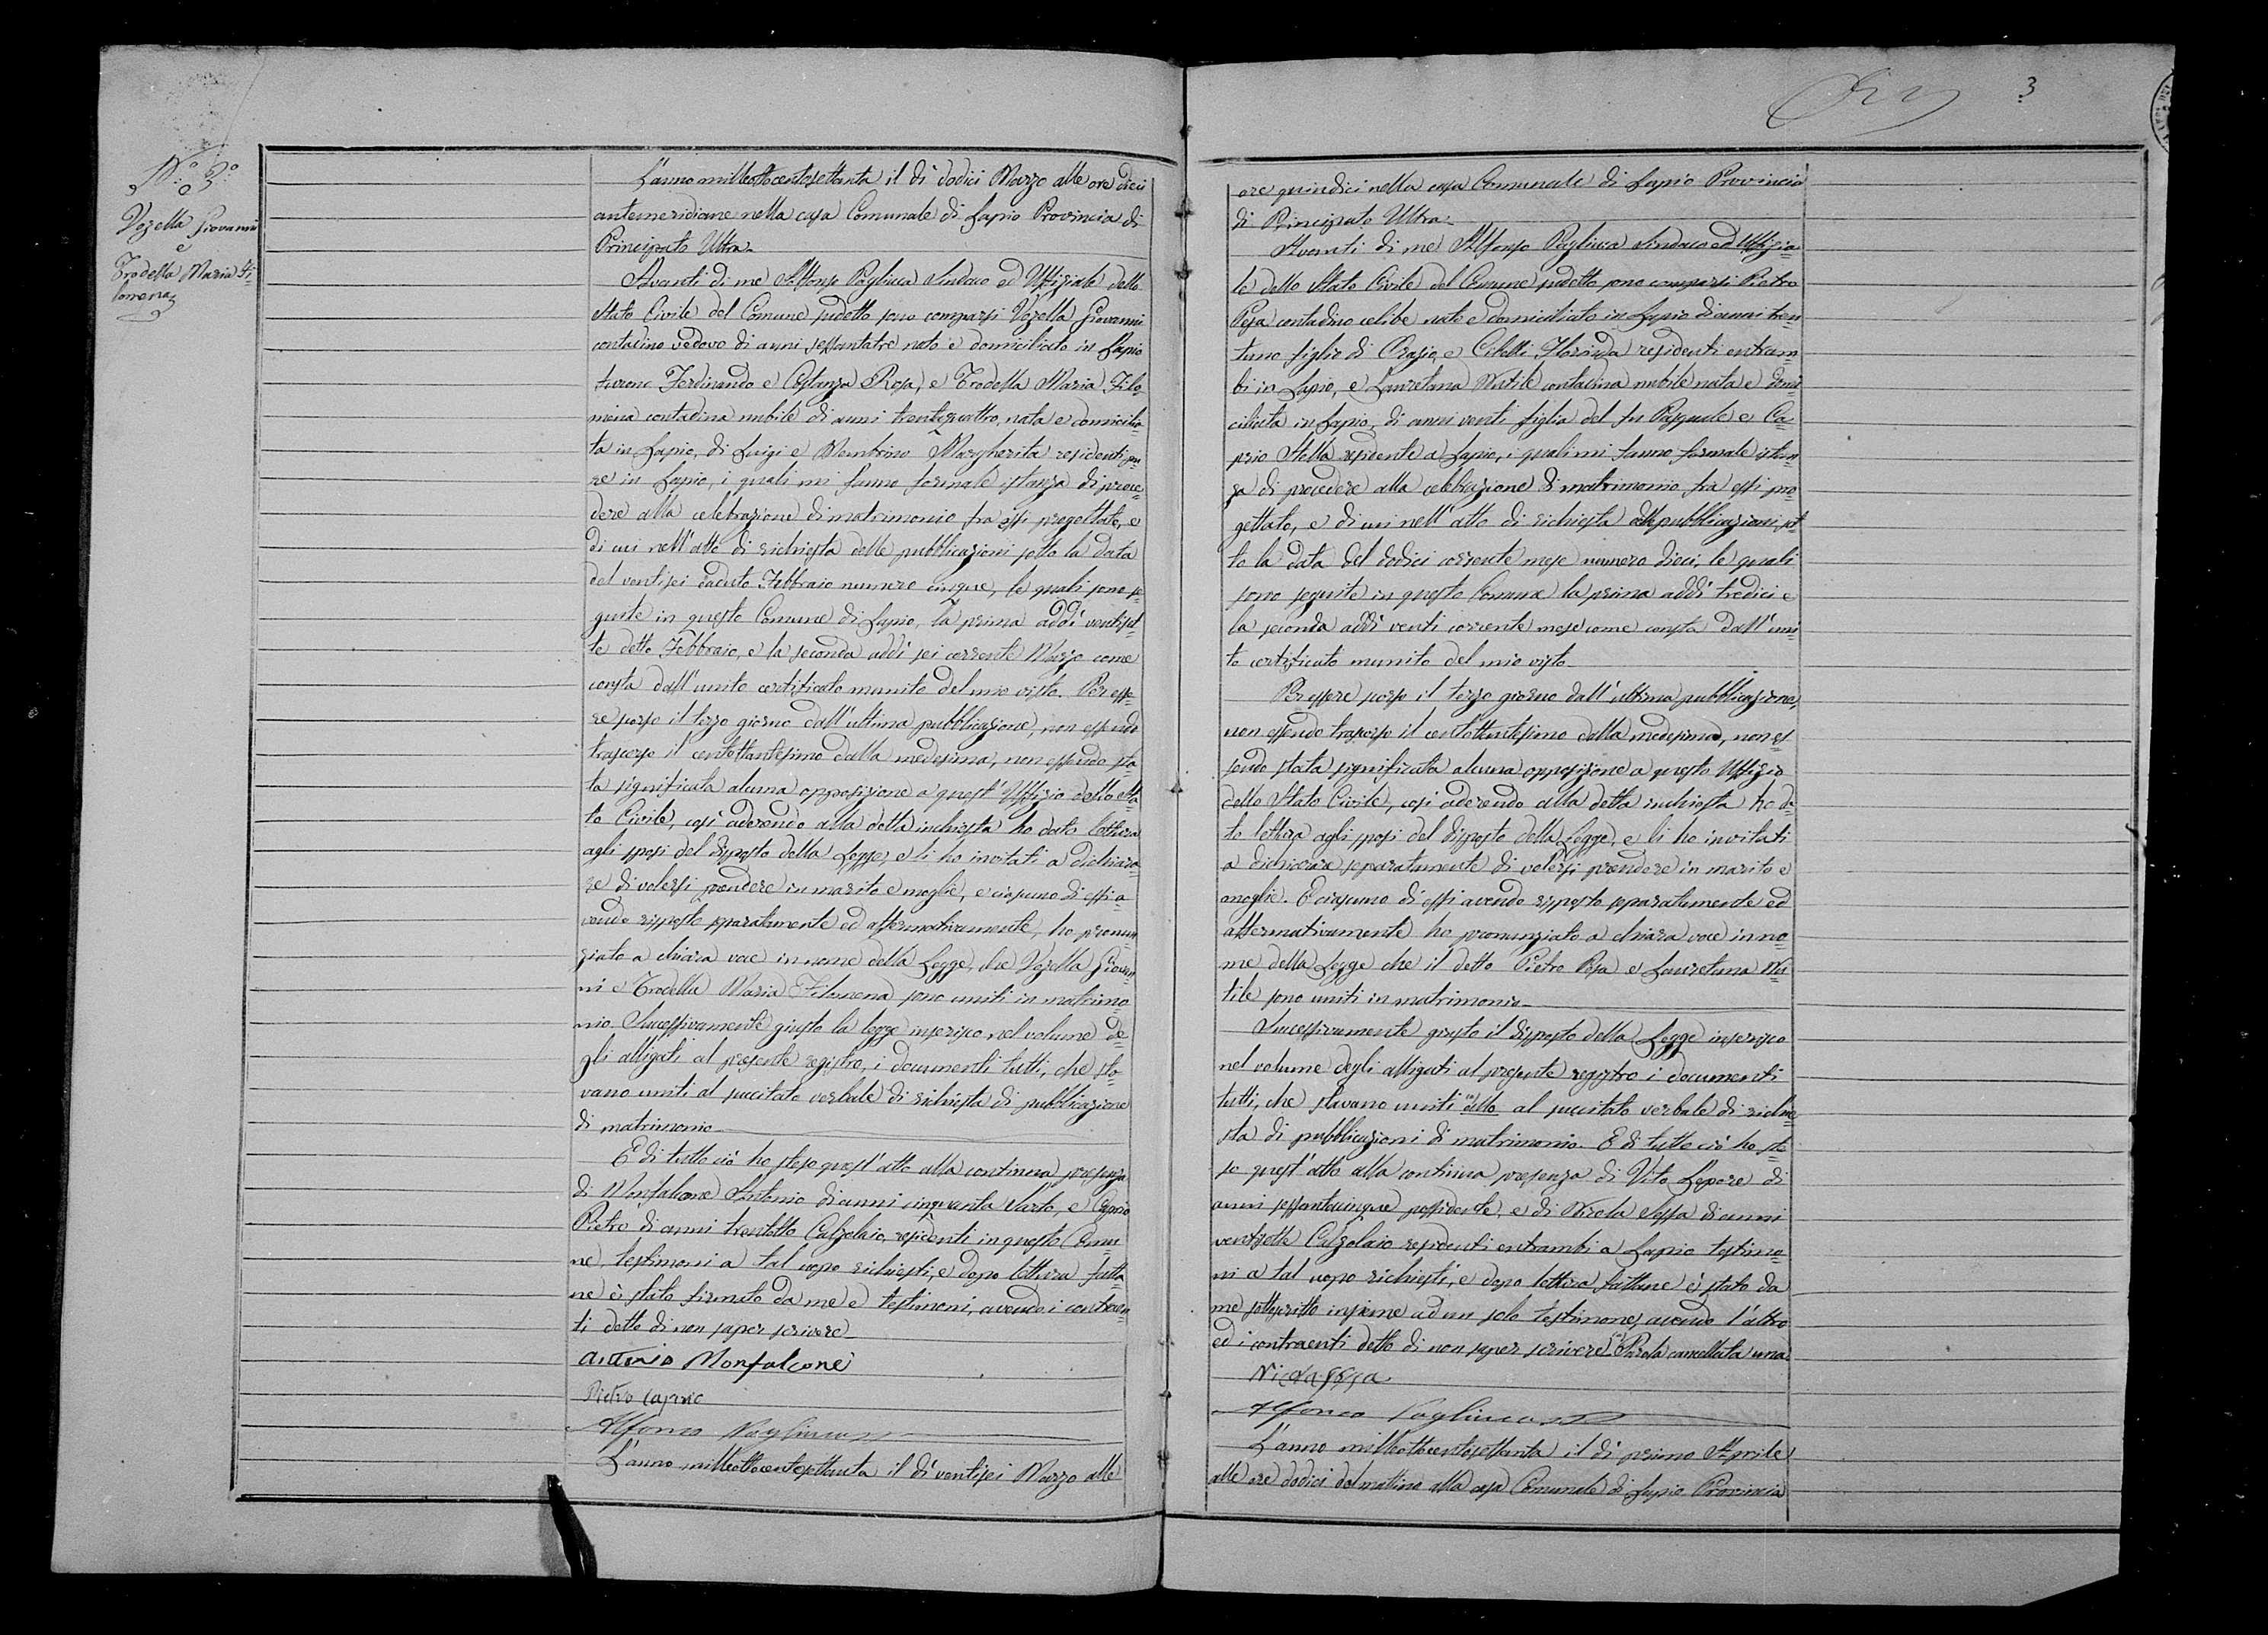 N.° 3°
Vozella Giovanni
e
Trodella Maria Fi-
lomena
L'anno milleottocentosettanta il dì dodici Marzo alle ore dieci
antemeridiane nella casa Comunale di Lapio Provincia di
Principato Ultra
Avanti di me Alfonso Pagliuca Sindaco ed Uffiziale dello
Stato Civile del Comune sudetto sono comparsi Vozella Giovanni
contadino vedovo di anni sessantatre nato e domiciliato in Lapio
furono Ferdinando e Costanza Rosa, e Trodella Maria Filo-
mena contadina nubile di anni trentaquattro, nata e domicilia-
ta in Lapio, di Luigi e Membrino Margherita residenti pu-
re in Lapio, i quali mi fanno formale istanza di proce-
dere alla celebrazione di matrimonio fra essi progettato, e
di cui nell'atto di richiesta delle pubblicazioni sotto la data
del ventisei scaduto Febbraio numero cinque, le quali sono se-
guite in questo Comune di Lapio, la prima addì ventiset-
te detto Febbraio, e la seconda addì sei corrente Marzo come
consta dall'unito certificato munito del mio visto. Per esse-
re scorso il terzo giorno dall'ultima pubblicazione, non essendo
trascorso il centottantesimo dalla medesima, non essendo sta-
ta significata alcuna opposizione a quest'Uffizio dello Sta-
to Civile, così aderendo alla detta inchiesta ho dato lettura
agli sposi del disposto della Legge, e li ho invitati a dichiara-
re di volersi prendere in marito e moglie, e ciascuno di essi a-
vendo risposto separatamente ed affermativamente, ho pronun-
ziato a chiara voce in nome della Legge, che Vozella Giovan-
ni e Trodella Maria Filomena sono uniti in matrimo-
nio. Successivamente giusto la legge inserisco nel volume de-
gli alligati al presente registro, i documenti tutti, che sta-
vano uniti al succitato verbale di richiesta di pubblicazione
di matrimonio
E di tutto ciò ho steso quest'atto alla continua presenza
di Monfalcone Antonio di anni cinquanta Sarto, e Caprio
Pietro di anni trentotto Calzolaio, residenti in questo Comu-
ne, testimoni a tal uopo richiesti, e dopo lettura fatta-
ne è stato firmato da me e testimoni, avendo i contraen-
ti detto di non saper scrivere
Antonio Monfalcone
Pietro Caprio
Alfonso Pagliuca
L'anno milleottocentosettanta il dì ventisei Marzo alle
3
ore quindici nella casa Comunale di Lapio Provincia
di Principato Ultra
Avanti di me Alfonso Pagliuca Sindaco ed Uffizia-
le dello Stato Civile del Comune sudetto sono comparsi Pietro
Pesa contadino celibe nato e domiciliato in Lapio di anni tren-
tuno figlio di Orazio, e Cibelli Florinda residenti entram-
bi in Lapio, e Lauretana Nutile contadina nubile nata e domi-
ciliata in Lapio, di anni venti figlia del fu Pasquale e Ca-
prio Stella residente a Lapio, i quali mi fanno formale istan-
za di procedere alla celebrazione di matrimonio fra essi pro-
gettato, e di cui nell'atto di richiesta delle pubblicazioni sot-
to la data del dodici corrente mese numero dieci, le quali
sono seguite in questo Comune la prima addì tredici e
la seconda addì venti corrente mese come consta dall'uni-
to certificato munito del mio visto
Per essere scorso il terzo giorno dall'ultima pubblicazione,
non essendo trascorso il centottantesimo dalla medesima, non es-
sendo stata significata alcuna opposizione a questo Uffizio
dello Stato Civile, così aderendo alla detta inchiesta ho da-
to lettura agli sposi del disposto della Legge, e li ho invitati
a dichiarare separatamente di volersi prendere in marito e
moglie. E ciascuno di essi avendo risposto separatamente ed
affermativamente ho pronunziato a chiara voce in no-
me della Legge che il detto Pietro Pesa e Lauretana Nu-
tile sono uniti in matrimonio
Successivamente giusto il disposto della Legge inserisco
nel volume degli alligati al presente registro i documenti
tutti, che stavano uniti al succitato verbale di richie-
sta di pubblicazioni di matrimonio. E di tutto ciò ho ste-
so quest'atto alla continua presenza di Vito Lepore di
anni sessantacinque possidente, e di Nicola Sessa di anni
ventisette Calzolaio residenti entrambi a Lapio testimo-
ni a tal uopo richiesti, e dopo lettura fattane è stato da
me sottoscritto insieme ad un solo testimone, avendo l'altro
ed i contraenti detto di non saper scrivere. Parola cancellata una
Alfonso Pagliuca
L'anno milleottocentosettanta il dì primo Aprile
alle ore dodici del mattino alla casa Comunale di Lapio Provincia